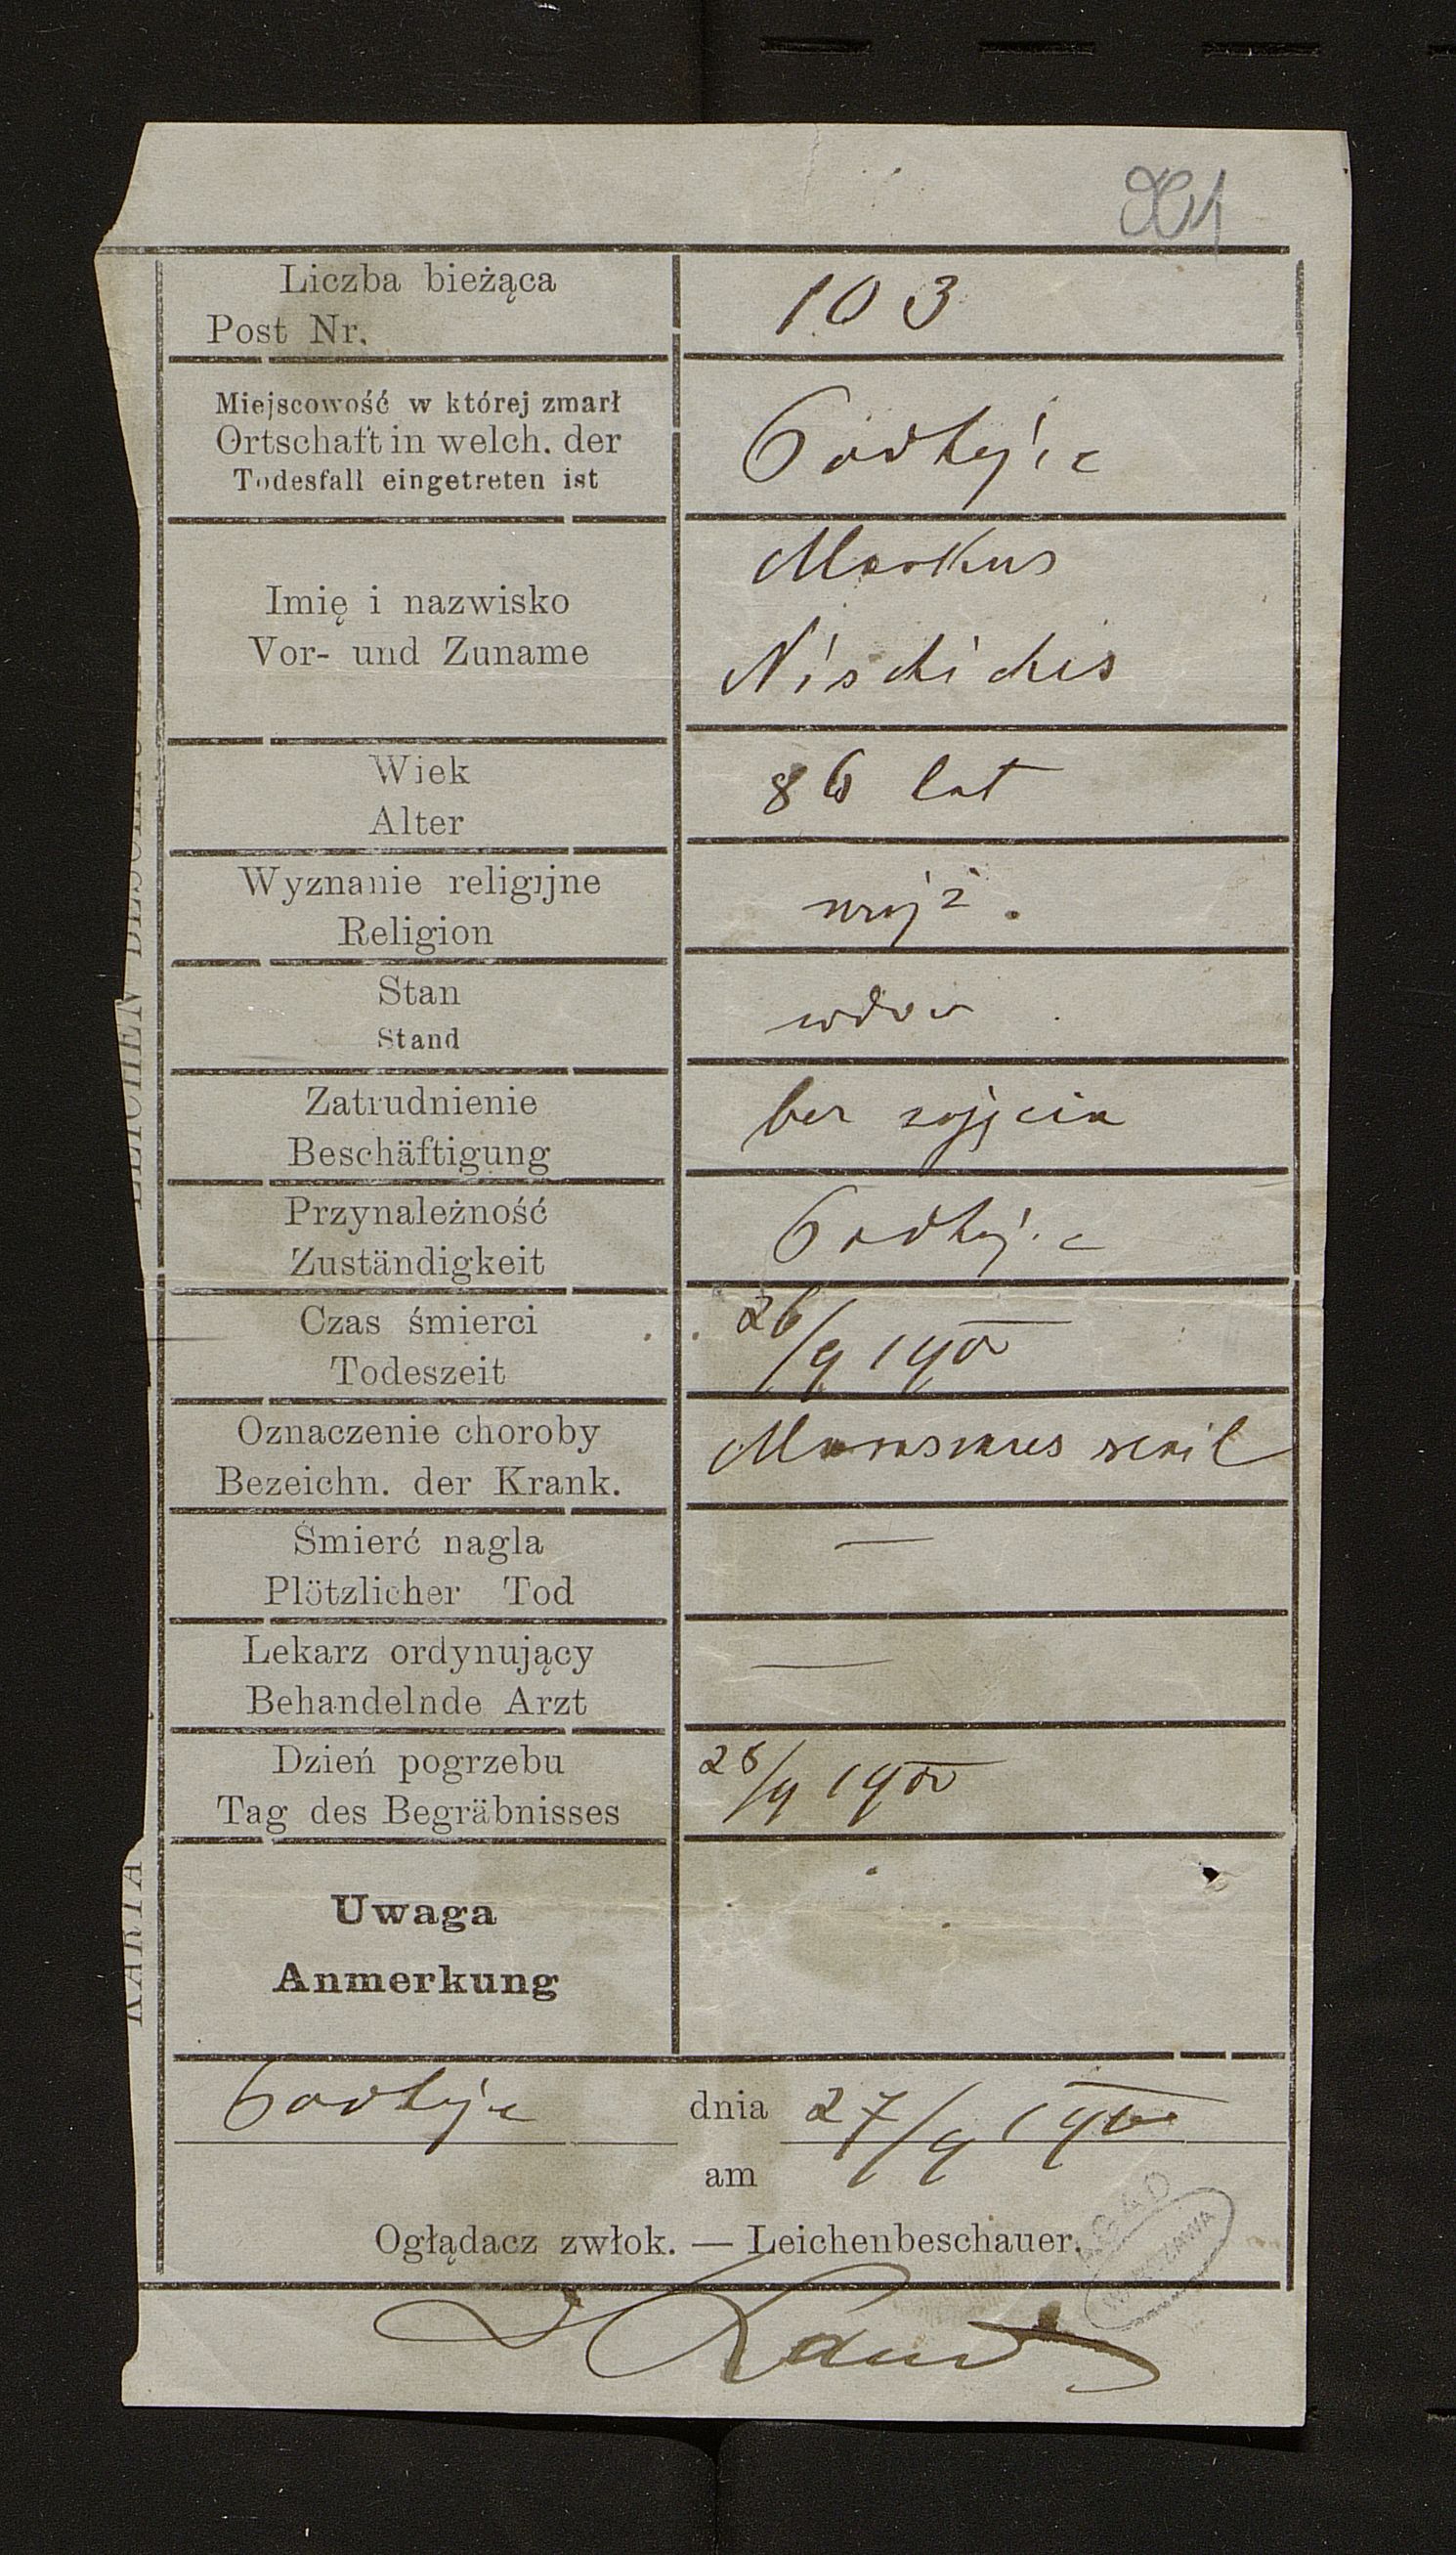 901
Liczba bieżąca
Post Nr.
103
Miejscowość w której zmarł
Ortschaft in welch. der
Todesfall eingetreten ist
Podhajce
Imię i nazwisko
Vor- und Zuname
Markus
Wiek
Alter
86 lat
Wyznanie religijne
Religion
mojż.
Stan
Stand
wdow
Zatrudnienie
Beschäftigung
bez zajęcia
Przynależność
Zuständigkeit
Podhajce
Czas śmierci
Todeszeit
26/9 1900
Oznaczenie choroby
Bezeichn. der Krank.
Marasmus senil
Śmierć nagla
Plötzlicher Tod
—
Lekarz ordynujący
Behandelnde Arzt
—
Dzień pogrzebu
Tag des Begräbnisses
28/9 1900
Uwaga
Anmerkung
Podhajce dnia 27/9 1900
am
Oglądacz zwłok. — Leichenbeschauer.
AGAD
WARSZAWA
KARTA
LEICHEN BESCH